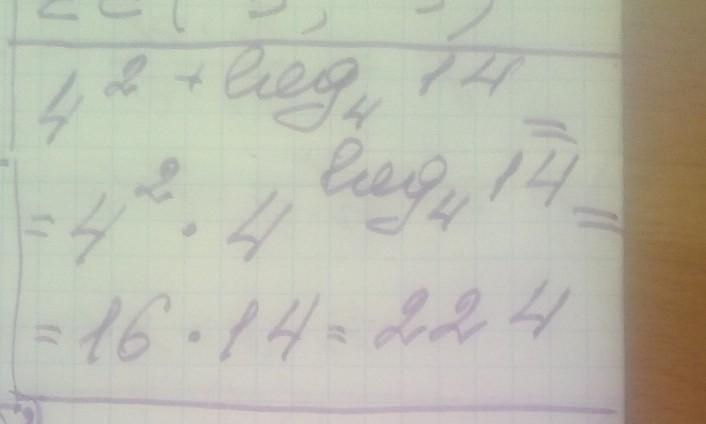 4^{2 + log_4 14} =
= 4^2 · 4^{log_4 14} =
= 16 · 14 = 224